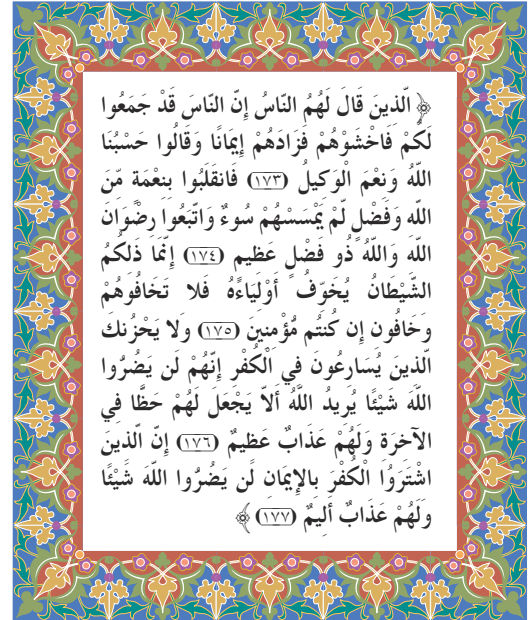 ﴿ الّذينَ قَالَ لَهُمُ النّاسُ إِنّ النّاسَ قَدْ جَمَعُوا
لَكُمْ فَاخْشَوْهُمْ فَزَادَهُمْ إِيمَانًا وَقَالُوا حَسْبُنَا
اللّهُ وَنعْمَ الْوَكيلُ (١٧٣) فَانقَلَبُوا بنعْمَة مّنَ
اللّه وَفَضْلٍ لّمْ يَمْسَسْهُمْ سُوءٌ وَاتّبَعُوا رضْوَانَ
اللّه وَاللّهُ ذُو فَضْلٍ عَظيم (١٧٤) إِنّمَا ذَلكُمُ
الشّيْطَانُ يُخَوّفُ أَوْليَاءَهُ فَلا تَخَافُوهُمْ
وَخَافُون إِن كُنتُم مُؤْمنينَ (١٧٥) وَلا يَحْزُنكَ
الّذينَ يُسَارعُونَ في الْكُفْر إِنّهُمْ لَن يَضُرُّوا
اللّهَ شَيْئًا يُريدُ اللّهُ أَلاّ يَجْعَل لَهُمْ حَظًّا في
الآخرَة وَلَهُمْ عَذَابٌ عَظيمٌ (١٧٦) إِنّ الّذينَ
اشْتَرَوُا الْكُفْرَ بالإِيمَان لَن يَضُرُّوا اللّهَ شَيْئًا
وَلَهُمْ عَذَابٌ أَليمٌ (١٧٧) ﴾